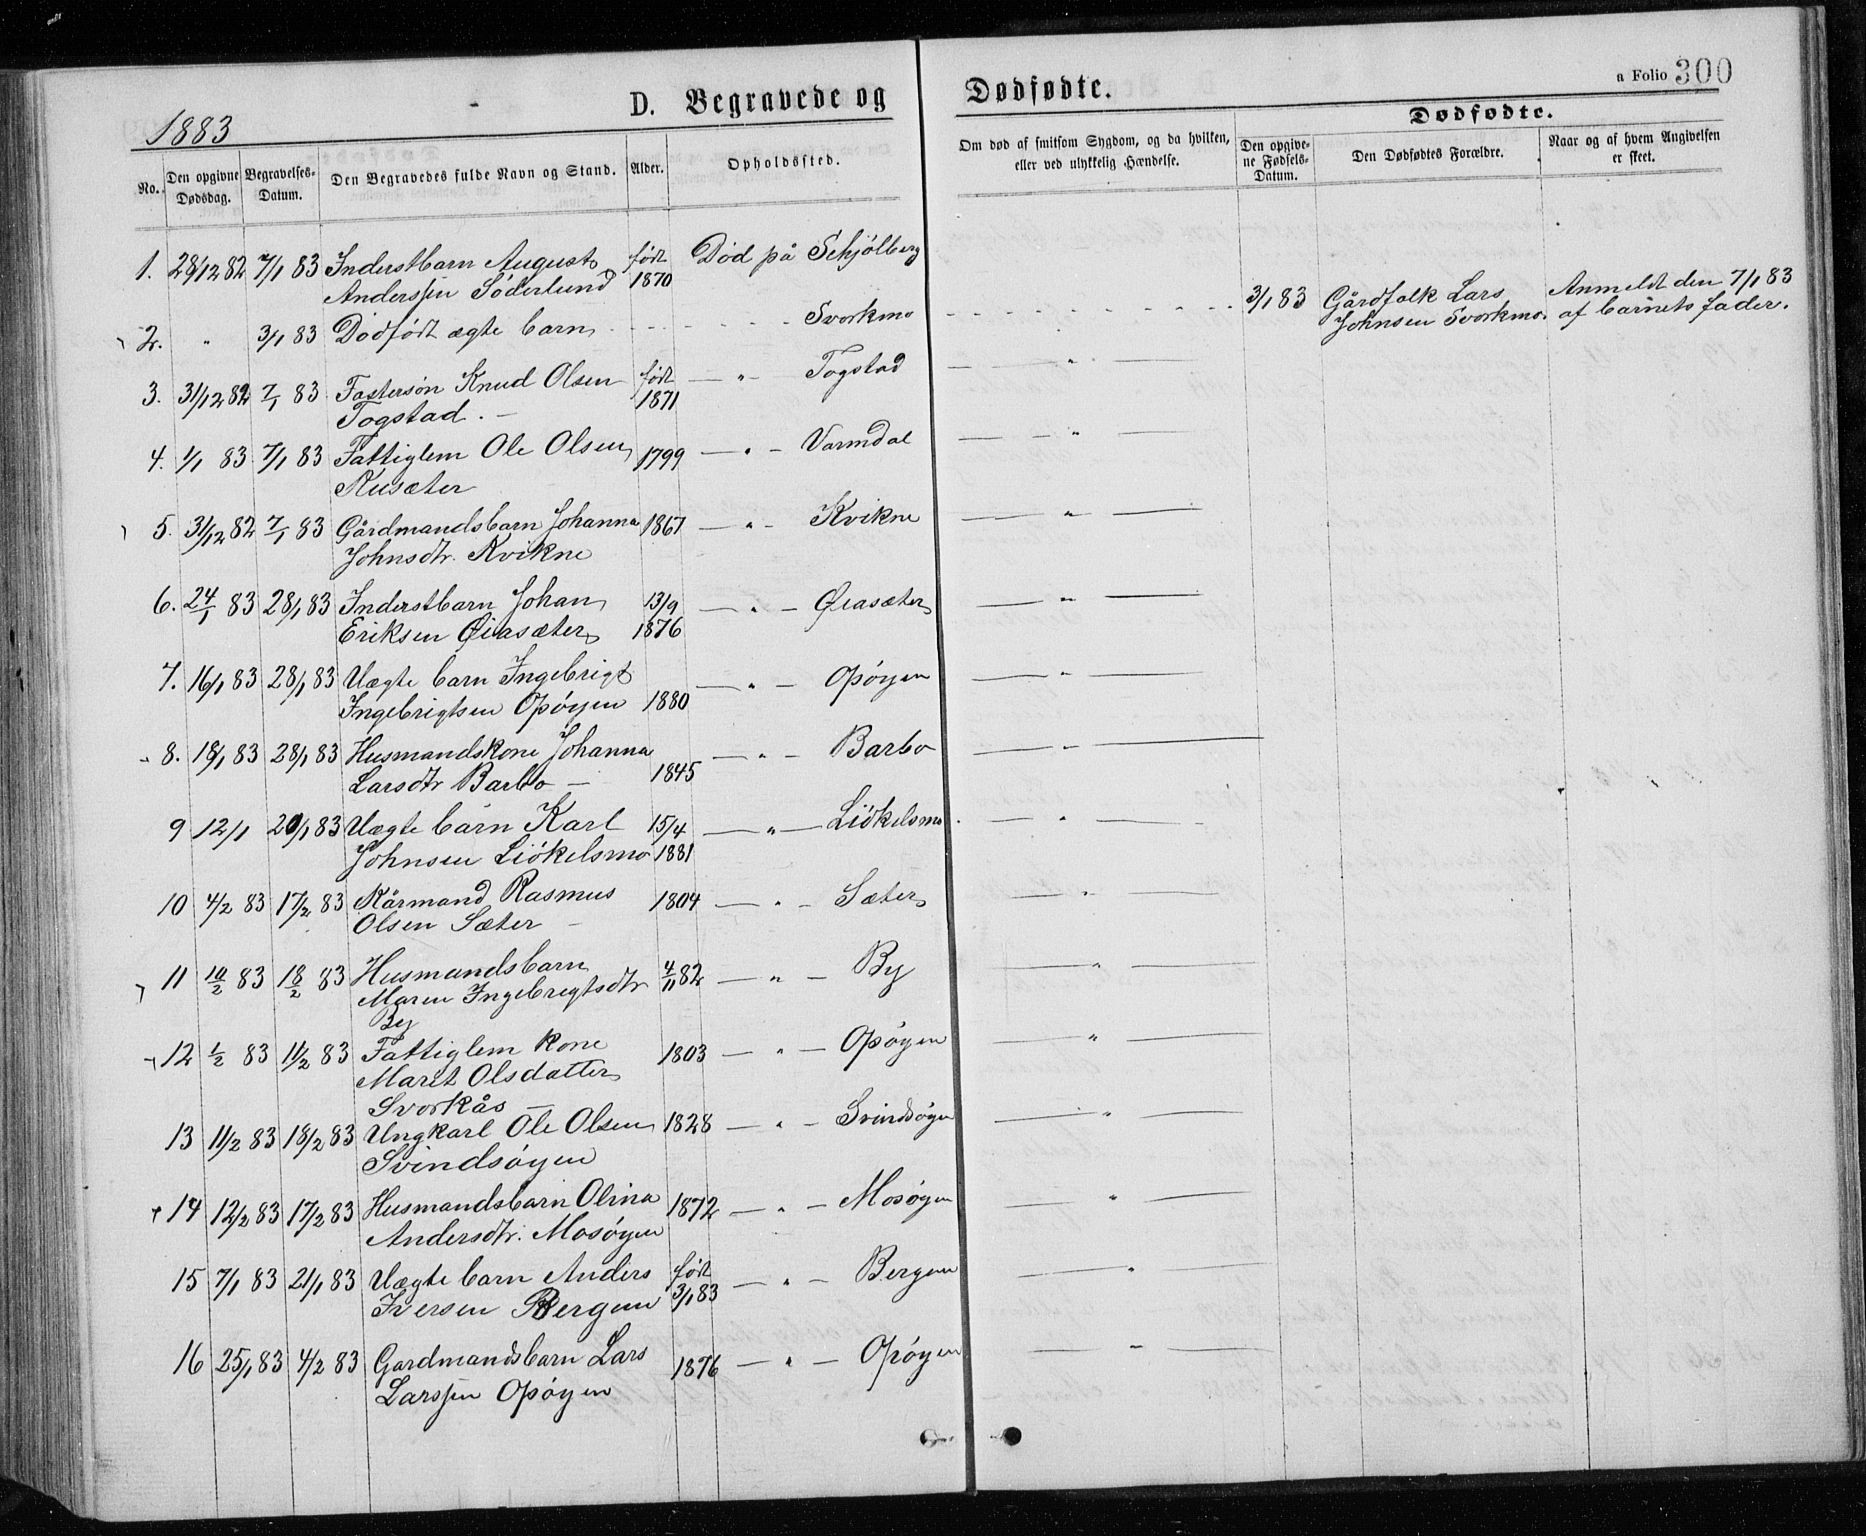 a Folio 300
1883 D. Begravede og Dødfødte.
Dødfødte.
No. Den opgivne Dødsdag. Begravelses-Datum. Den Begravedes fulde Navn og Stand. Alder. Opholdssted. Om død af smitsom Sygdom, og da hvilken, eller ved ulykkelig Hændelse. Den opgivne Fødsels-Datum. Den Dødfødtes Forældre. Naar og af hvem Angivelsen er skeet.
1. 28/12 82 7/1 83 Inderstbarn August født Død på Schjölberg
Anderssen Söderlund 1870
2. " 3/1 83 Dödfödt ægte barn Svorkmo 3/1 83 Gårdfolk Lars Anmeldt den 7/1 83
Johnsen Svorkmo. af barnets fader.
3. 31/12 82 7/1 83 Fostersön Knud Olsen født — " — Togstad — " —
Togstad. — 1871
4. 1/1 83 7/1 83 Fattiglem Ole Olsen 1799 — " — Varmdal — " —
Rusæter
5. 31/12 82 7/1 83 Gårdmandsbarn Johanna 1867 — " — Kvikne — " —
Johnsdtr. Kvikne
6. 24/1 83 28/1 83 Inderstbarn Johan 13/9 — " — Øiasæter — " —
Eriksen Øiasæter 1876
7. 16/1 83 28/1 83 Uægte barn Ingebrigt — " — Opöyen — " —
Ingebrigtsen Opöyen 1880
8. 18/1 83 28/1 83 Husmandskone Johanna — " — Barbo — " —
Larsdtr Barbo — 1845
9 12/1 20/1 83 Uægte barn Karl 15/4 — " — Liökelsmo — " —
Johnsen Liökelsmo 1881
10 4/2 83 17/2 83 Kårmand Rasmus 1804 — " — Sæter — " —
Olsen Sæter —
11 10/2 83 18/2 83 Husmandsbarn 4/11 82 — " — By — " —
Maren Ingebrigtsdtr
By
12 1/2 83 11/2 83 Fattiglem kone 1803 — " — Opöyen — " —
Marit Olsdatter
Svorkås —
13 11/2 83 18/2 83 Ungkarl Ole Olsen 1828 — " — Svindsöyen — " —
Svindsöyen
14 12/2 83 17/2 83 Husmandsbarn Olina 1872 — " — Mosöyen — " —
Andersdtr. Mosöyen
15 7/1 83 21/1 83 Uægte barn Anders født — " — Bergum — " —
Iversen Bergum 3/1 83
16 25/1 83 4/2 83 Gardmandsbarn Lars 1876 — " — Opöyen — " —
Larssen Opöyen